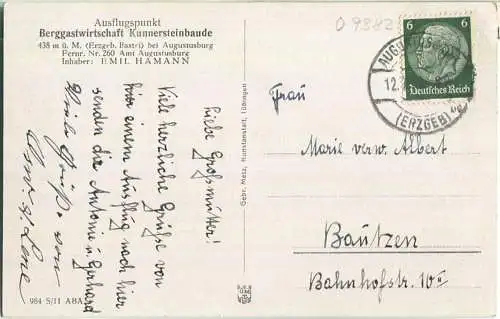 Ausflugspunkt
Berggastwirtschaft Kunnersteinbaude
438 m ü. M. (Erzgeb. Bastei) bei Augustusburg
Fernr. Nr. 260 Amt Augustusburg
Inhaber: EMIL HAMANN
Liebe Großmutter!
Viele herzliche Grüße von
hier einem Ausflug nach hier
senden dir Antonie u. Gerhard
Viele Grüße von
u. Lene
984 5/11 ABA
Gebr. Metz, Kunstanstalt, Tübingen
09382
6
6
Deutsches Reich
12.
(ERZGEB)
Frau
Marie verw. Albert
Bautzen
Bahnhofstr. 10 II